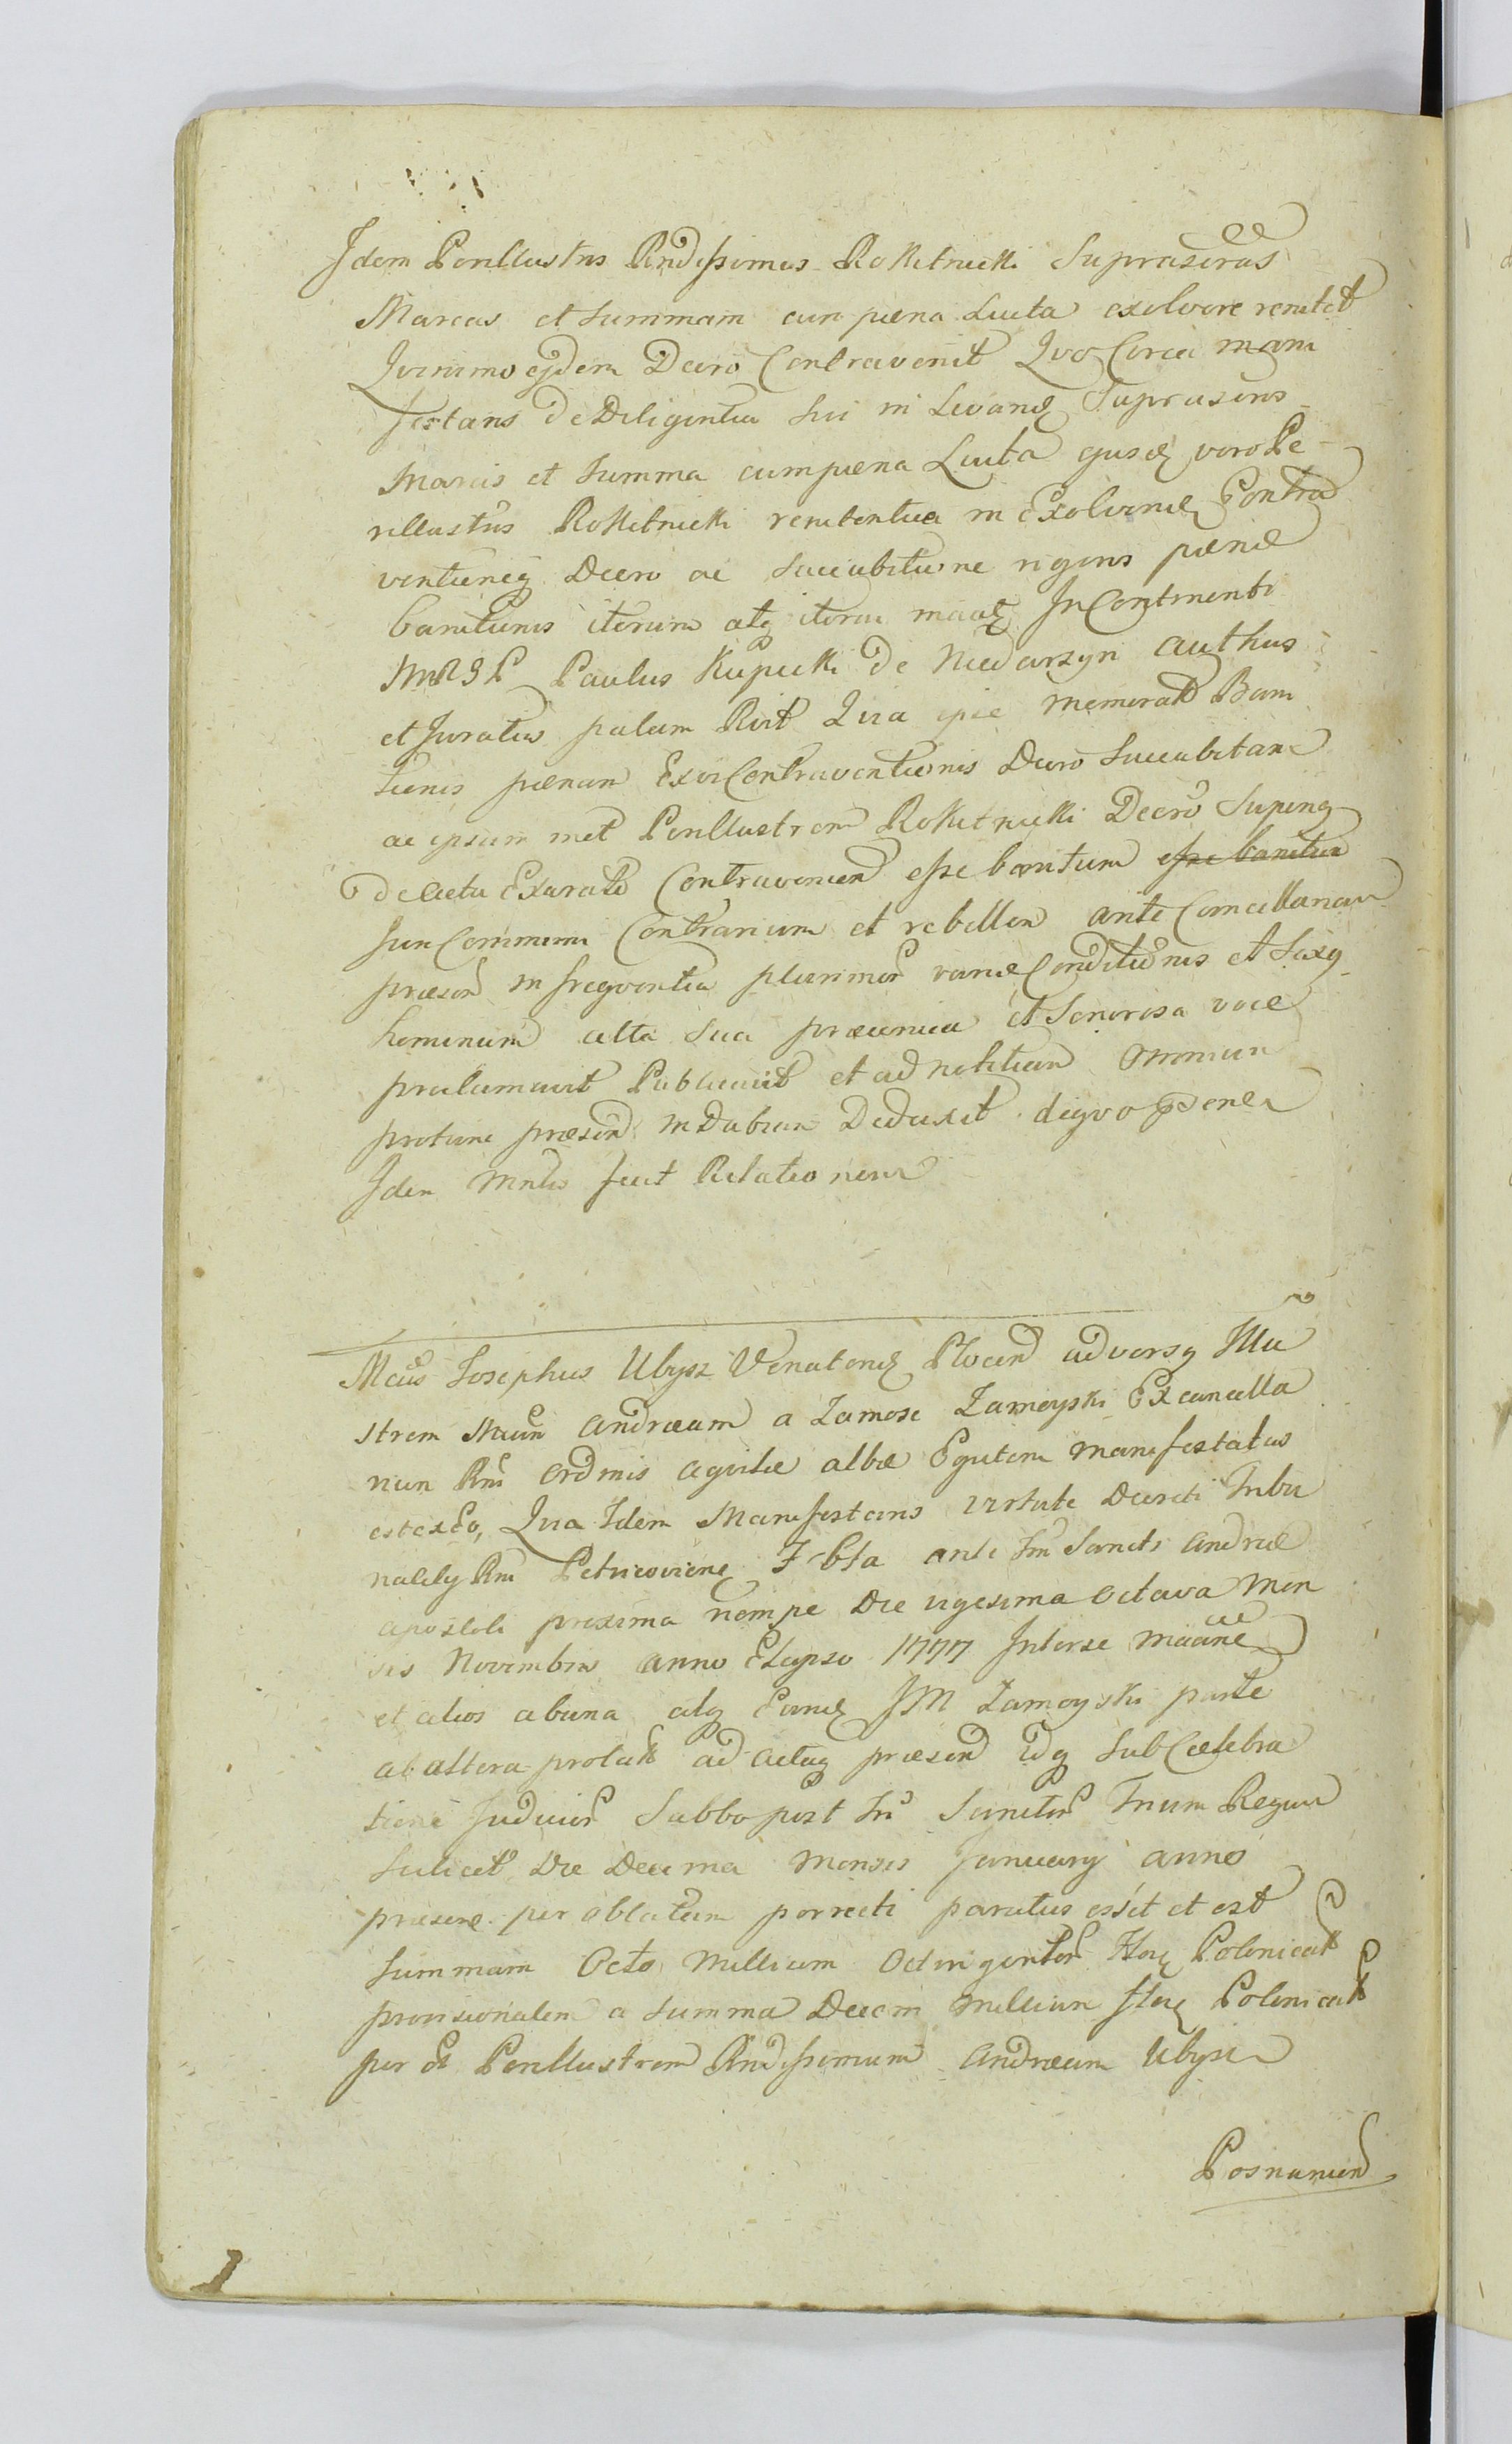 Idem Perillustris Rndissimus Rokitnicki Suprascrās
Marcas et Summam cum pæna Luita exolvere renitet
Qvinimo ejdem Decro Contravenit Qvo Circa mani
festans de Diligentia sui in Levand Suprascris
Marcis et Summa cum pæna Luita ejusd vero Pe
rillustris Rokitnicki renitentia in Exolvend Contra
ventioneq Decro ac Succubitione rigoris pænæ
banitionis iterum atq iterum
Paulus Kupecki de authus
et Juratus palam Rvit Qvia ipse memorat Bani
tionis pænam Ex vi Contraventionis Decro Succubitam
ac ipsum met Perillustrem Rokitnicki Decro Superiq
de actu Exarato Contravenien esse banitum esse banitum
Juri Communi Contrarium et rebellem ante Cancellariam
præsen in freqventia plurimor variæ Conditionis et Sexq
hominum alta sua præconica et Sonorosa voce
proclamavit Publicavit et ad notitiam Omnium
protunc præsen in Dubium Deduxit de qvo
Idem Mnlis fecit Relationem
Mcus Josephus Ubysz Venatorid Plocen adversq Illu
strem Mcum Andræum a Zamosc Zamoyski Excancella
rium Rni Ordinis Aqvilæ albæ Eqvitem manifestatus
est ex Eo, Qvia Idem Manifestans virtute Decreti Tribu
nality Rni Petricovien F bta ante Fm Sancti Andreæ
apostoli proxima nempe Die vigesima Octava Men
sis Novembris anno Elapso 1777 Interse
et alios ab una atq Eund JM Zamoyski parte
ab altera prolat ad Actaq præsen idq Sub Celebra
tione Judicior Sabbo post Fm Sanctor Trium Regum
Scilicet Die Decima Mensis January anno
præsen per oblatam porrecti paratus essit et est
Summam Octo Millium Octingentor Flor Polonical
provisionalem a Summa Decem Millium flor Polonical
per Perillustrem Rndissimum Andræum Ubysz
Posnanien